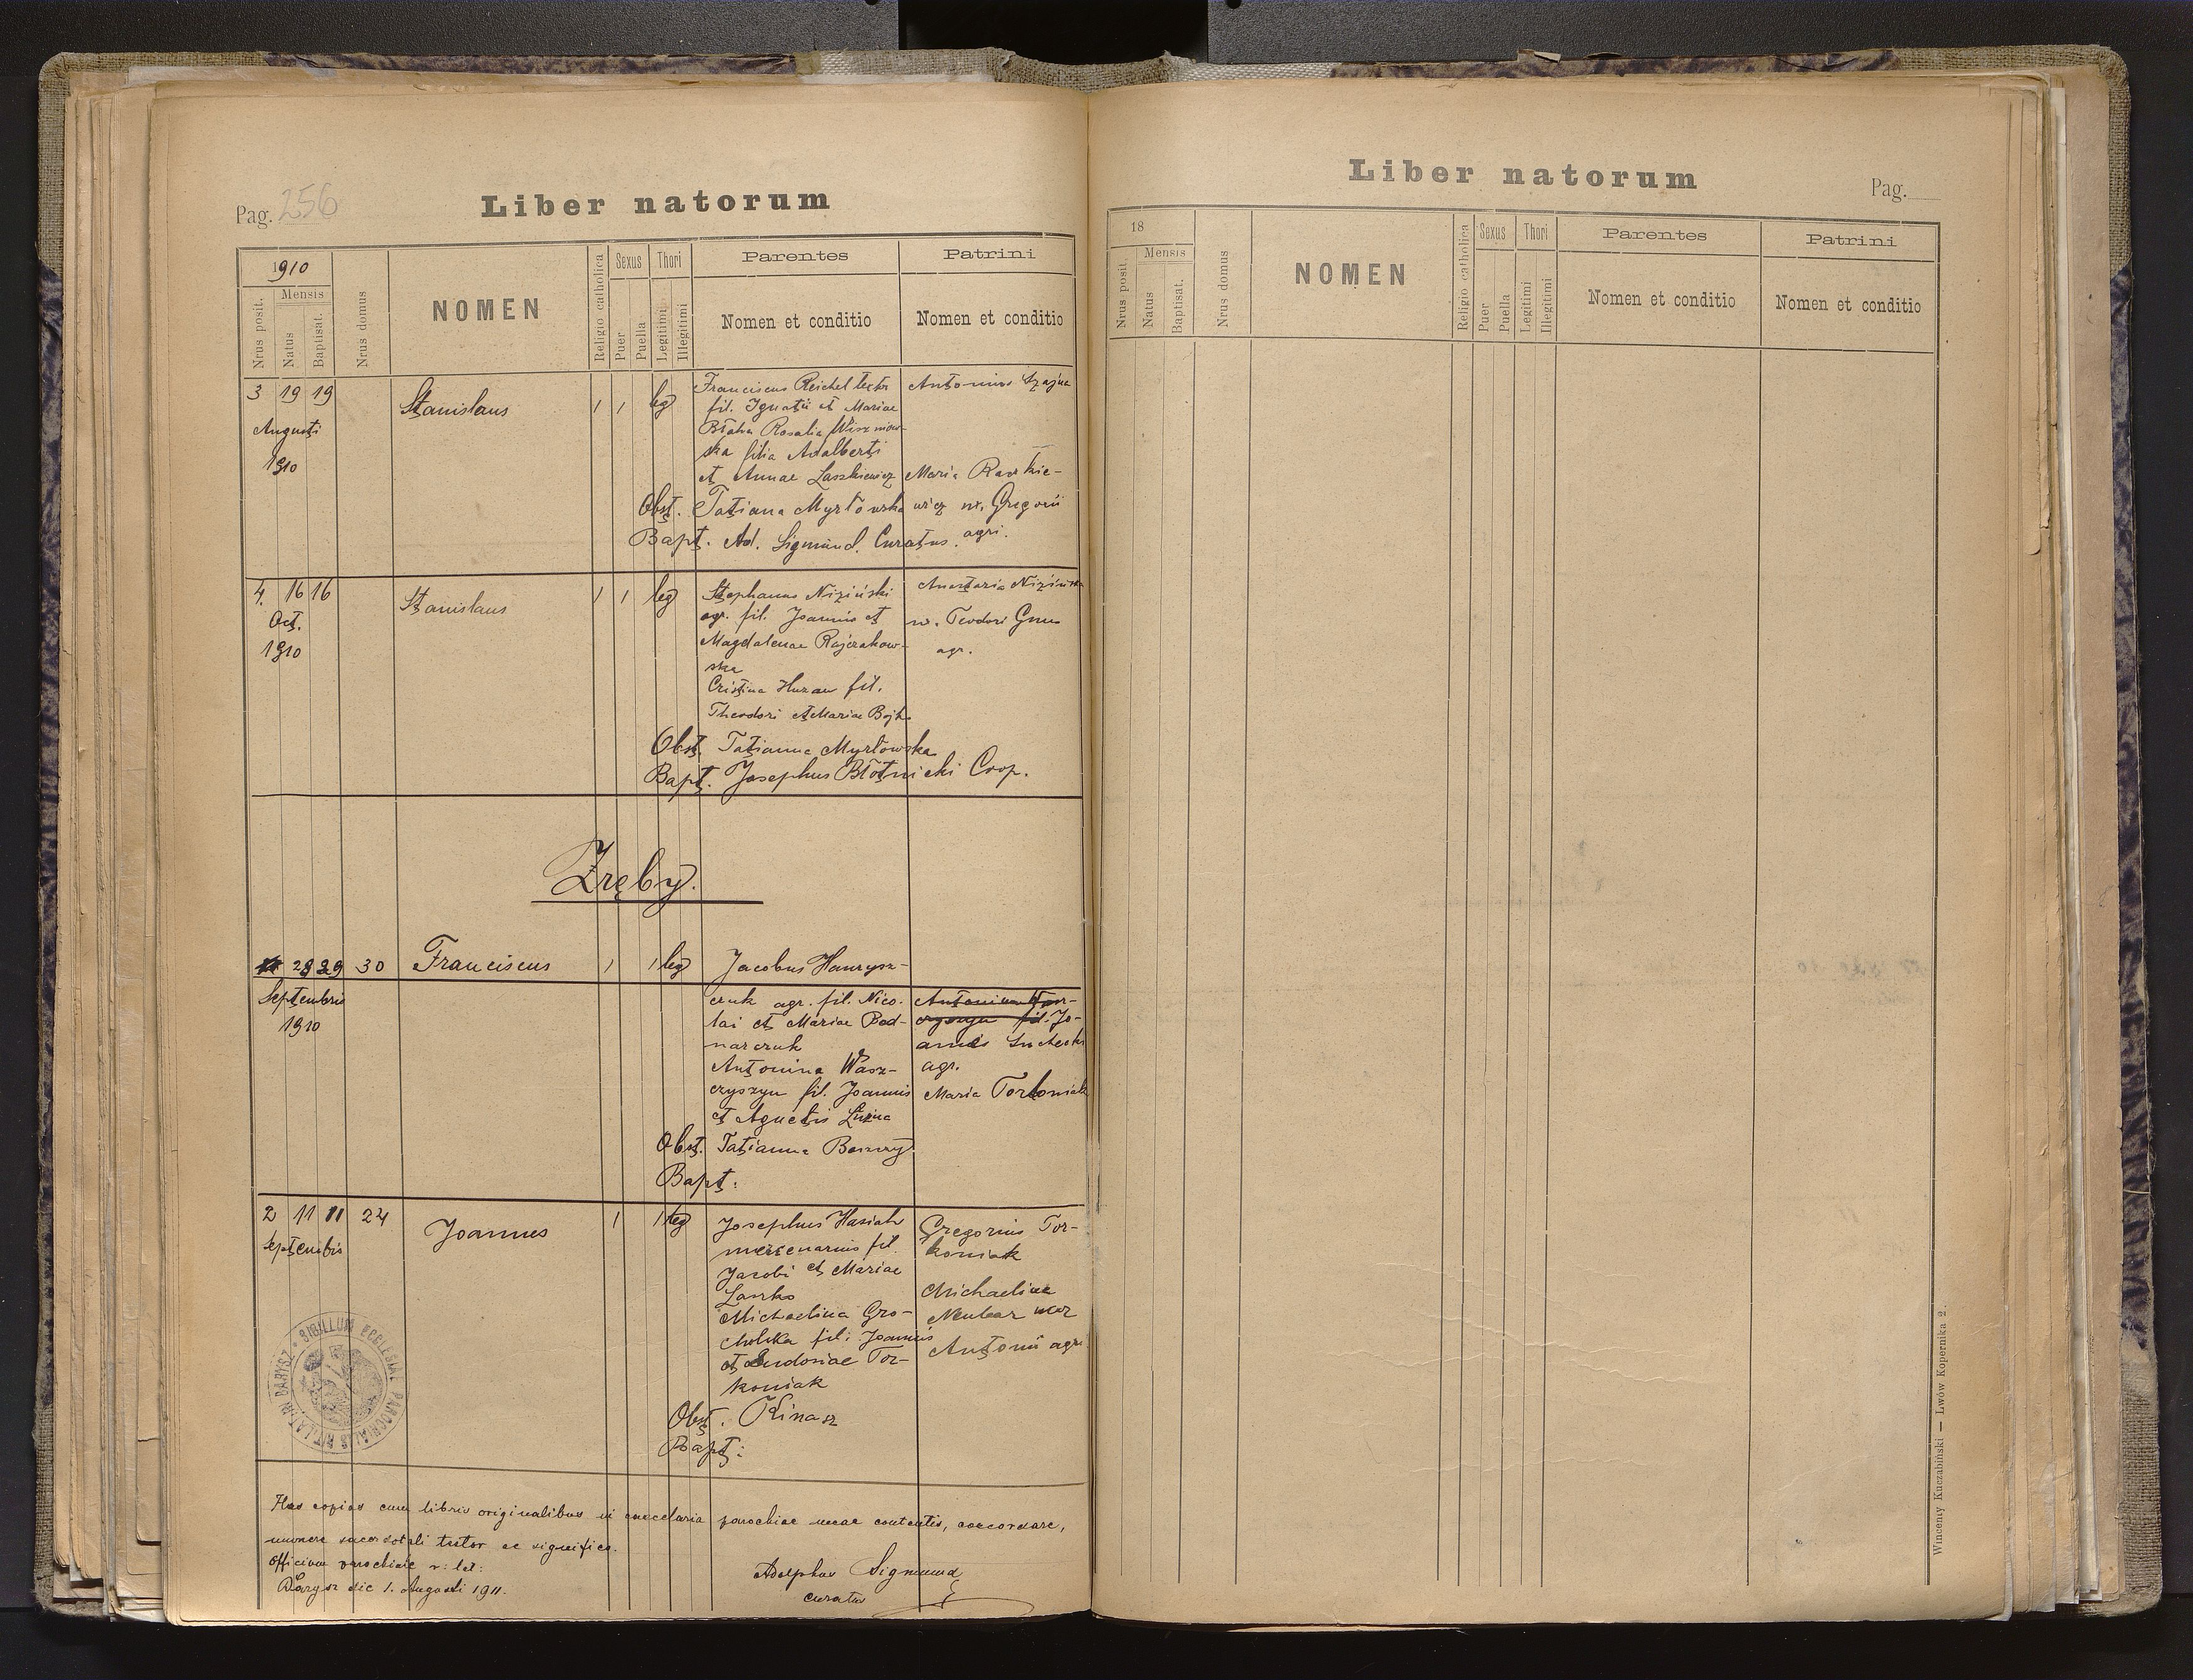 Pag. 256
Liber natorum
1910
Nrus posit.
Mensis
Natus
Baptisat.
Nrus domus
NOMEN
Religio catholica
Sexus
Puer
Puella
Thori
Legitimi
Illegitimi
Parentes
Nomen et conditio
Patrini
Nomen et conditio
3 19 19
Augusti
1910
Stanislaus
1 1 leg
Franciscus Reichel
fil. Ignatii et Mariae
Rosalia Wiszniow-
ska filia Adalberti
et Annae Laszkiewicz
Antonius Szajna
Maria Raszkie-
wicz w. Gregorii
agri.
Obst. Tatiana Myrtowska
Bapt. Ad. Sigmund. Curatus.
4. 16 16
Oct.
1910
Stanislaus
1 1 leg
Stephanus Niziński
agr. fil. Joannis et
Magdalenae
ska
Cristina Huzau fil.
Theodori et Mariae
Anastasia Nizińska
w. Teodori
agr.
Obst. Tatianna Myrtowska
Bapt. Josephus Błotnicki Coop.
Zręby.
29 30 Franciscus 1 1 leg
Septembris
1910
Jacobus Hawrysz-
czuk agr. fil. Nico-
lai et Mariae Bod-
narczuk
Antonina Wasz-
czyszyn fil. Joannis
et Agnetis
fil. Jo-
annis
agr.
Maria Torkoniak
Obst. Tatianna
Bapt:
2 11 11 24 Joannes 1 1 leg
Septembris
Josephus Hasiak
mercenarius fil.
Jacobi et Mariae
Laszko
Michaelina Gro-
cholska fil: Joannis
et Eudosiae Tor-
koniak
Gregorius Tor-
koniak
Michaelina
Neubar uxor
Antonii agri
Obst. Kinasz
Bapt:
SIGILLUM ECCLESIAE PAROCHIALIS RIT. LAT. IN BARYSZ
Has copias cum libris originalibus in cancelaria parochiae meae contentis, concordare,
munere sacerdotali testor ac significo.
Officium parochiale r: lat:
Barysz die 1. Augusti 1911.
Adolphus Sigmund
curatus
Liber natorum
Pag.
18
Nrus posit.
Mensis
Natus
Baptisat.
Nrus domus
NOMEN
Religio catholica
Sexus
Puer
Puella
Thori
Legitimi
Illegitimi
Parentes
Nomen et conditio
Patrini
Nomen et conditio
Wincenty Kuczabiński — Lwów Kopernika 2.